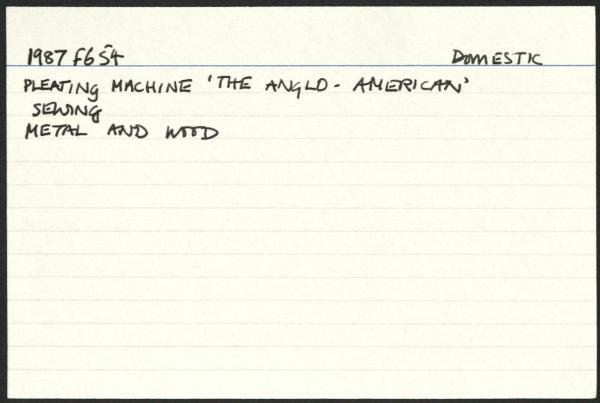 1987 F654 DOMESTIC
PLEATING MACHINE 'THE ANGLO-AMERICAN'
SEWING
METAL AND WOOD